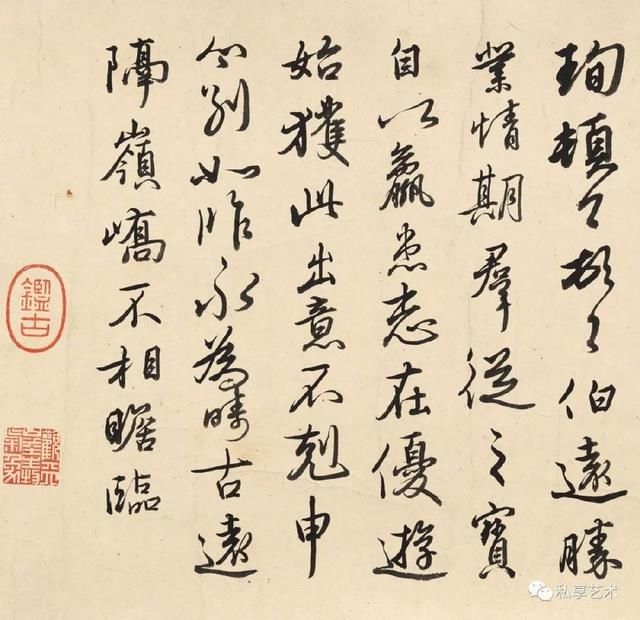 珣頓首頓首伯遠勝
業情期羣從之寶
自以羸患志在優遊
始獲此出意不剋申
分別如昨永為疇古遠
隔嶺嶠不相瞻臨
鑑古
私享艺术